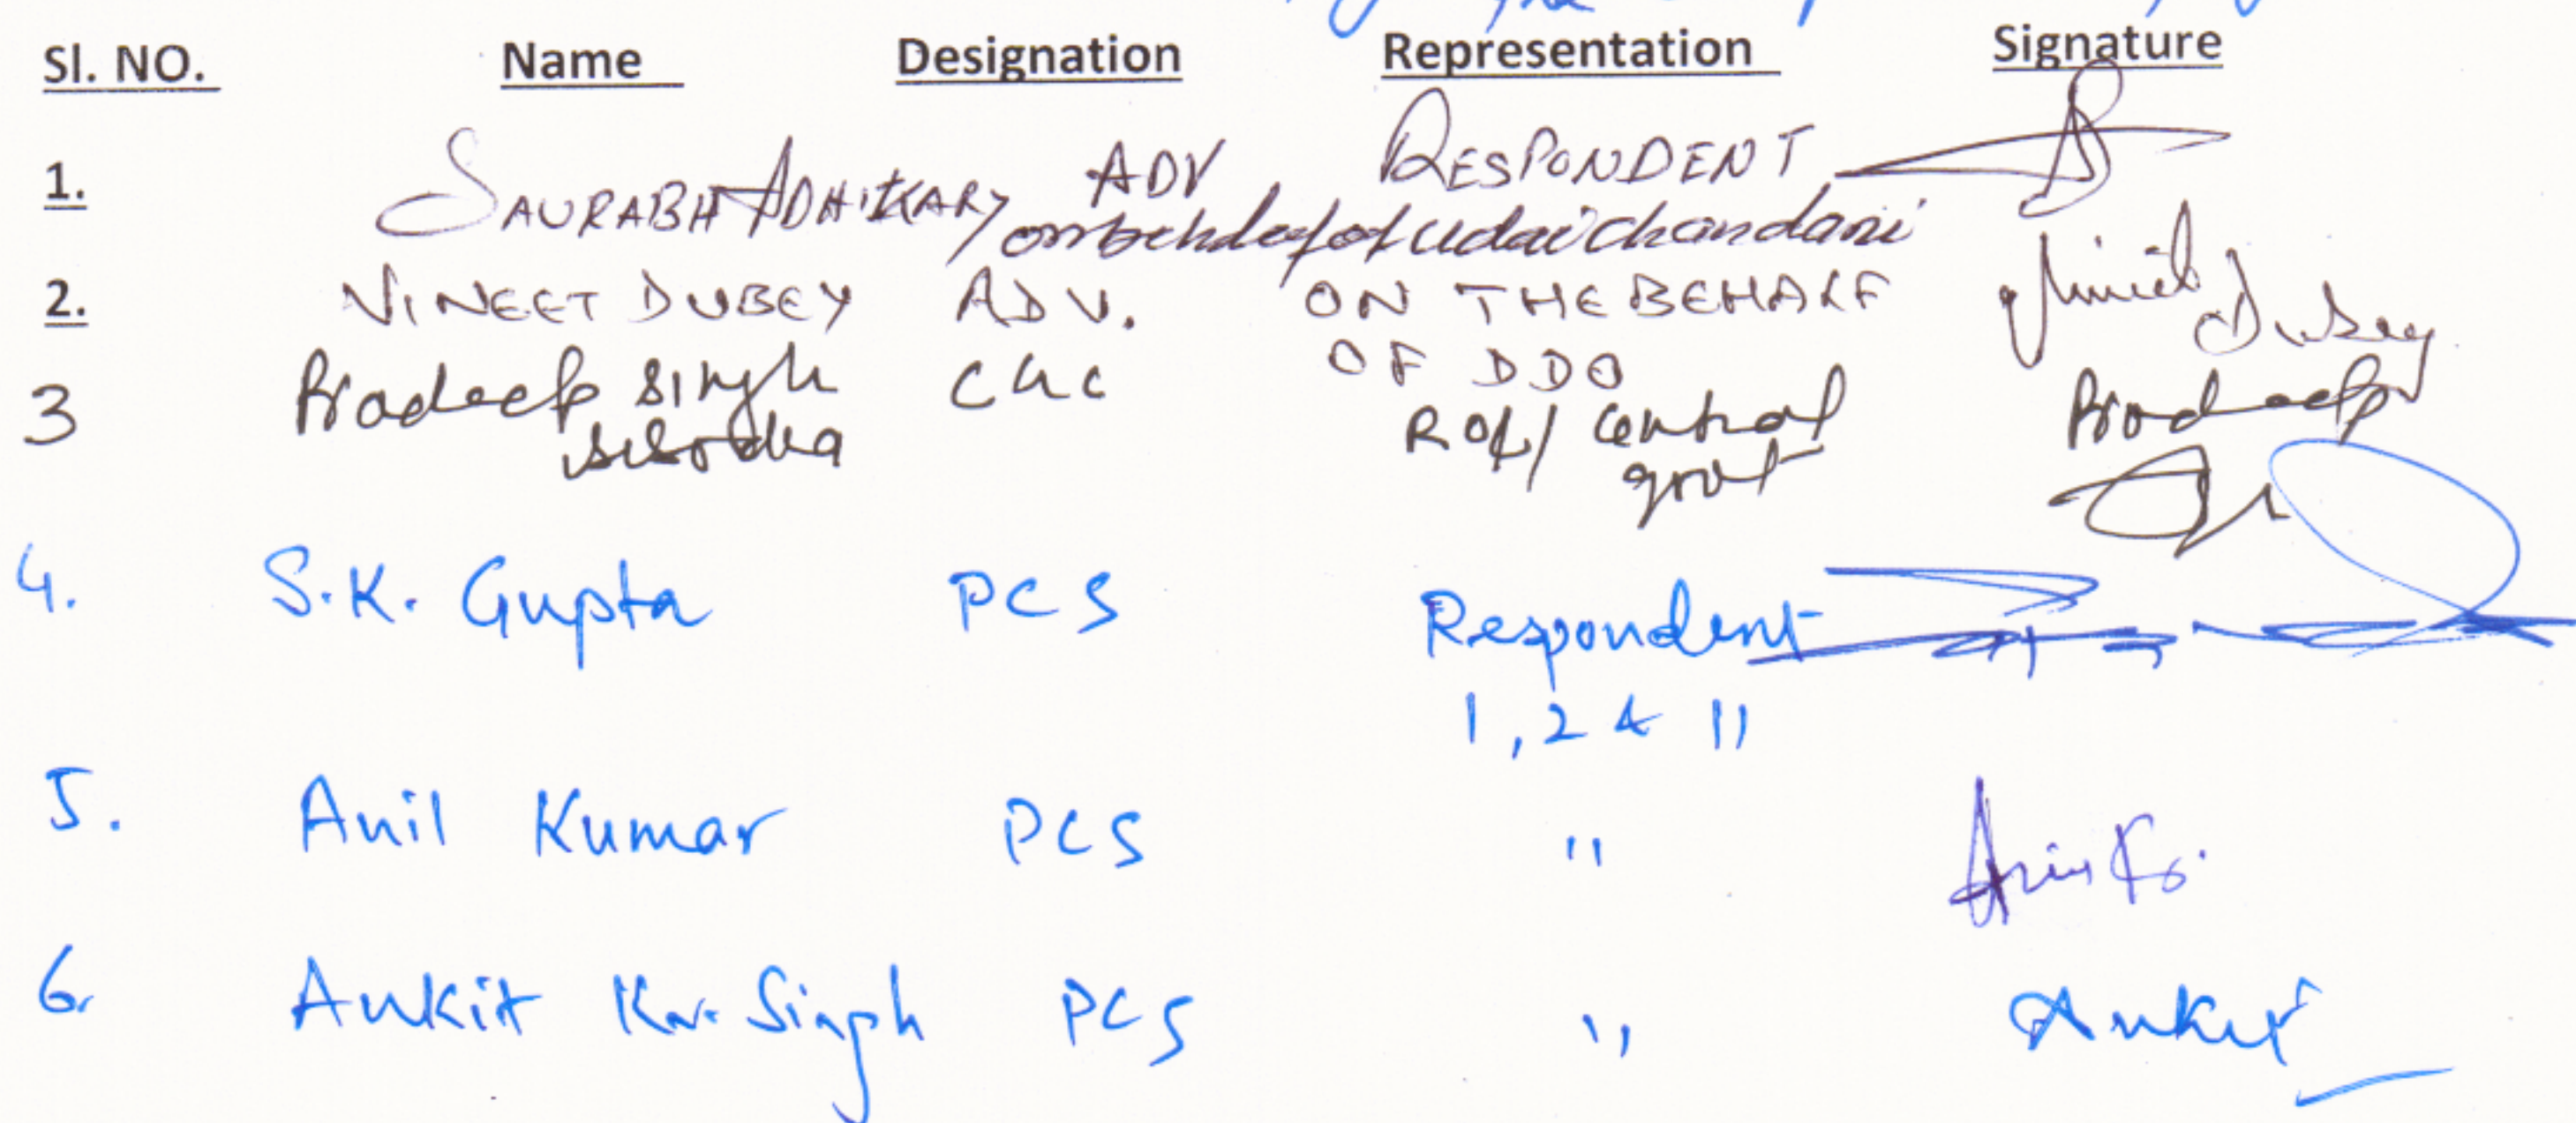 Sl. NO. Name Designation Representation Signature
1. SAURABH ADHIKARY ADV RESPONDENT
on behalf of Udai Chandani
2. VINEET DUBEY ADV. ON THE BEHALF Vineet Dubey
OF DDO
3 Pradeep Singh CGC ROC/ Central Pradeep
Sisodia govt
4. S.K. Gupta PCS Respondent
1, 2 & 11
5. Anil Kumar PCS " Anil Kr.
6. Ankit Kr. Singh PCS " Ankit